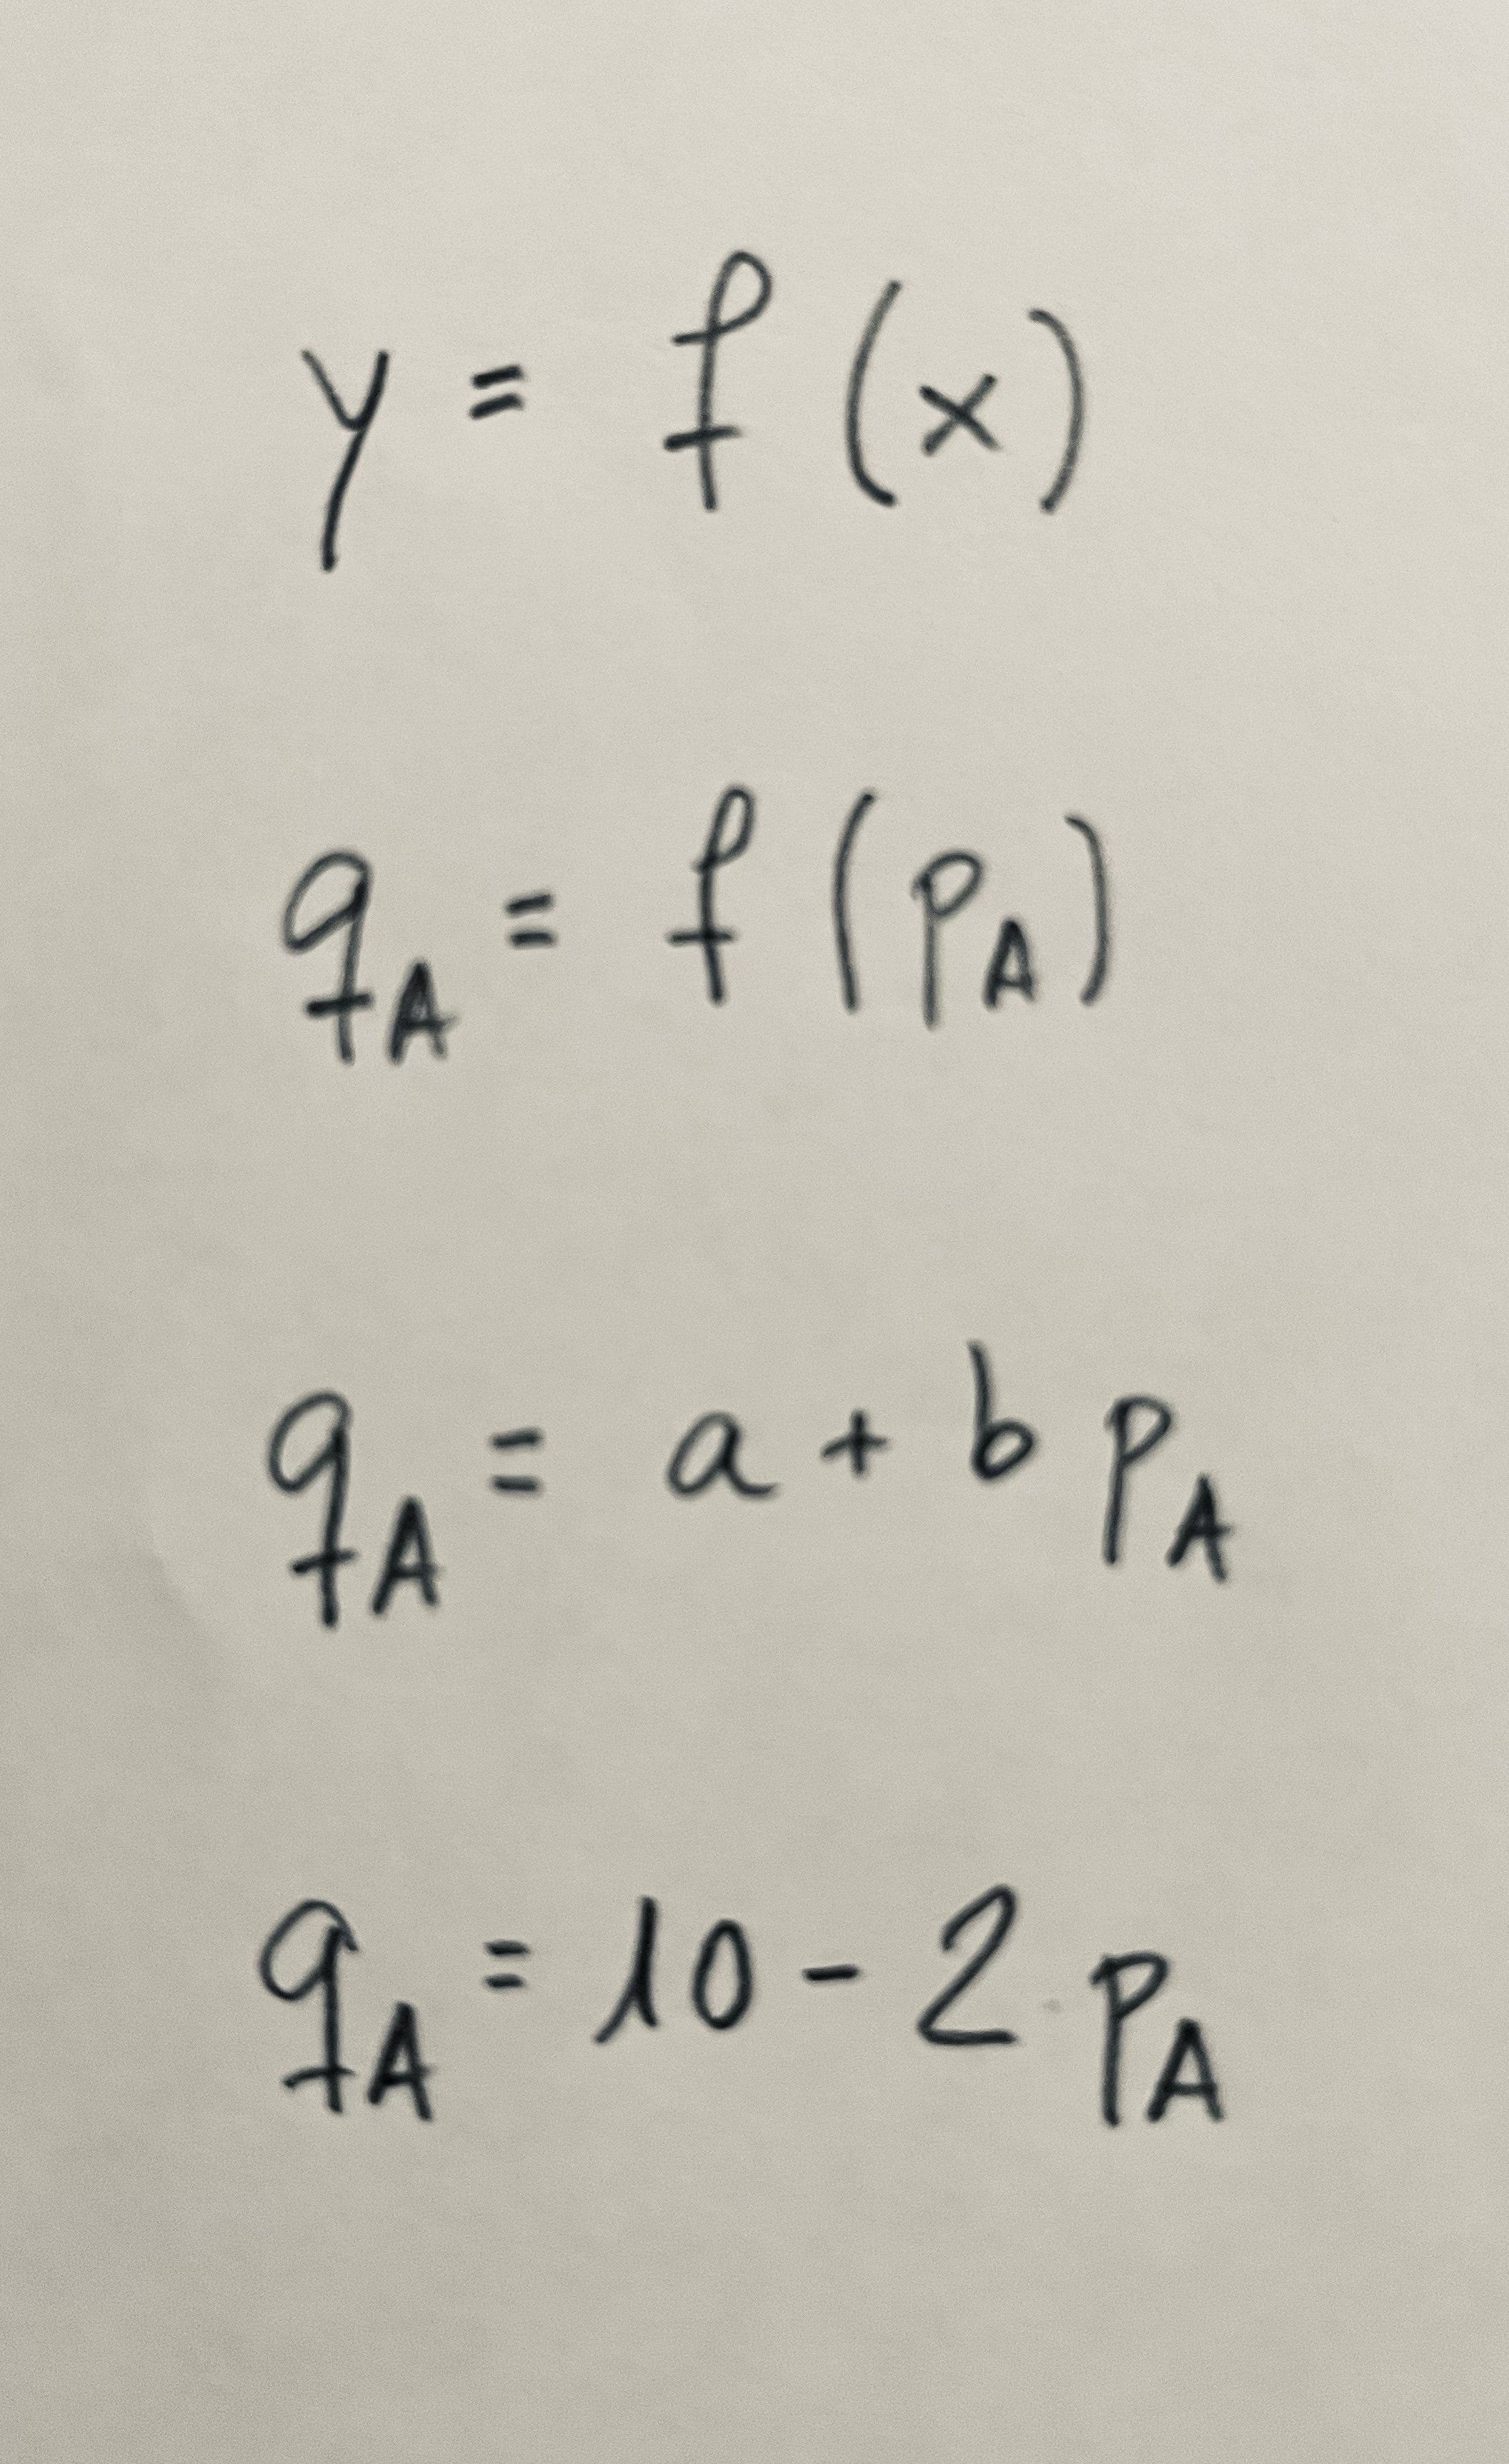 y = f(x)
q_A = f(p_A)
q_A = a + b p_A
q_A = 10 - 2 p_A